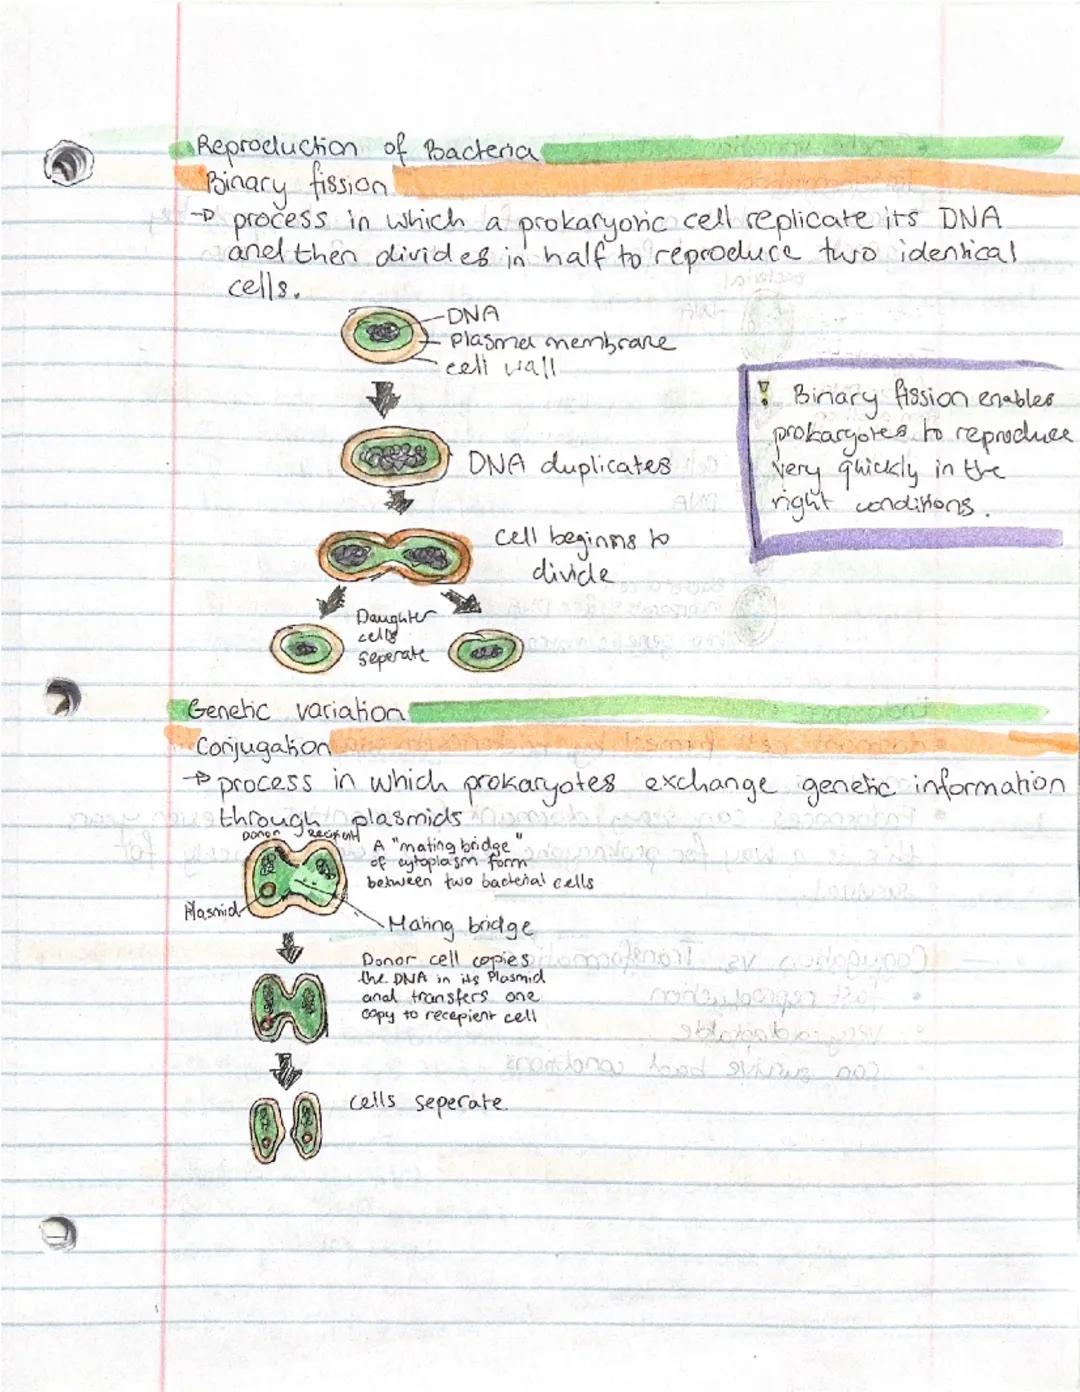 Reproduction of Bacteria
Binary fission
→ process in which a prokaryotic cell replicate its DNA
and then divides in half to reproduce two identical
cells.
DNA
Plasma membrane
cell wall
! Binary fission enables
prokaryotes to reproduce
very quickly in the
right conditions.
DNA duplicates
Cell beginns to
divide
Daughter
cells
seperate
Genetic variation
Conjugation
→ process in which prokaryotes exchange genetic information
through plasmids
Donor Recipient
A "mating bridge"
of cytoplasm form
between two bacterial cells
Plasmid
Mating bridge
Donor cell copies
the DNA in its Plasmid
and transfers one
copy to recepient cell
cells seperate